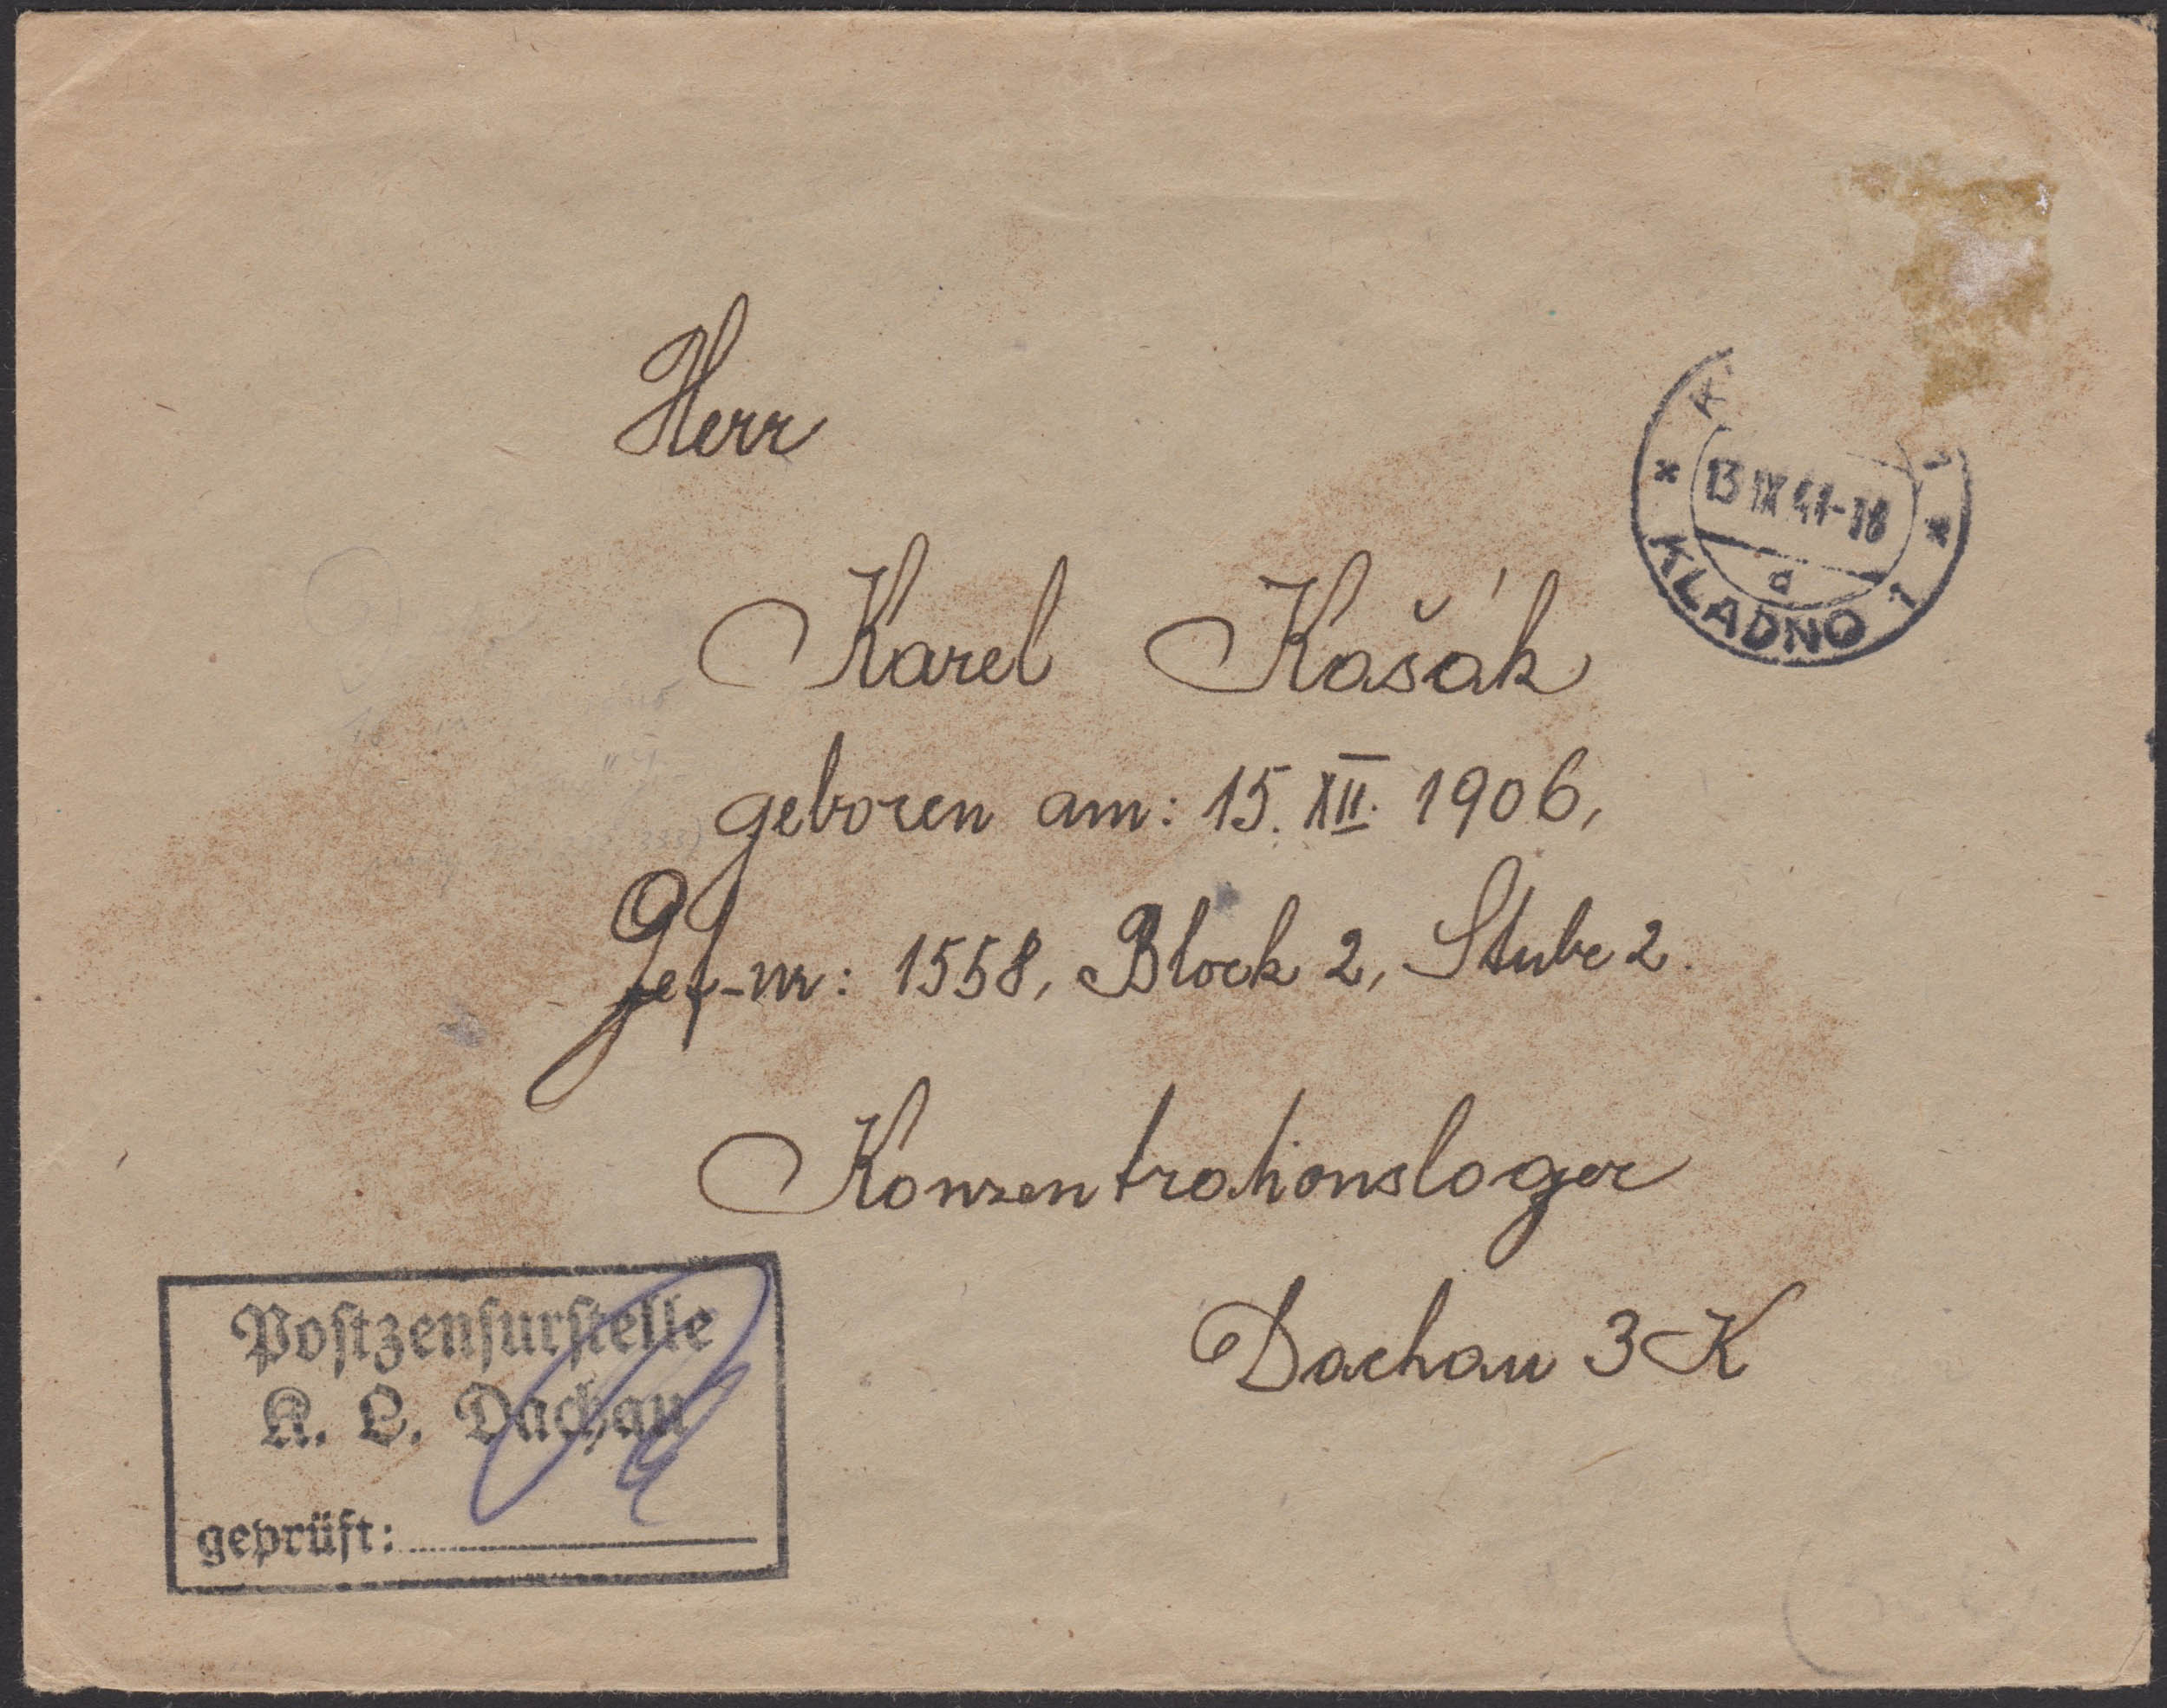 Herr
Karel Kašák
geboren am: 15. XII. 1906,
Gef-nr: 1558, Block 2, Stube 2.
Konzentrationslager
Dachau 3 K
13 IX 41-18
a
KLADNO 1
Postzensurstelle
K. L. Dachau
geprüft: